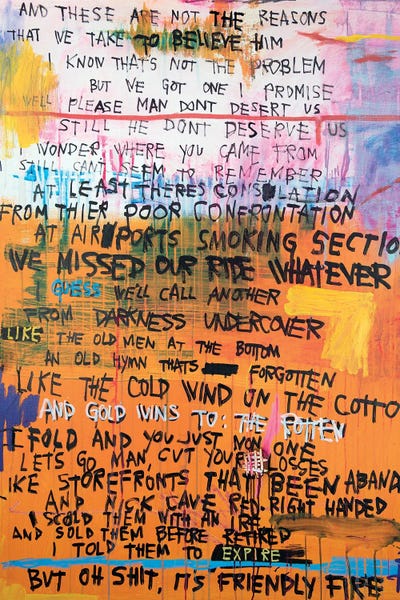 AND THESE ARE NOT THE REASONS
THAT WE TAKE TO BELIEVE HIM
I KNOW THATS NOT THE PROBLEM
BUT WE GOT ONE I PROMISE
WELL PLEASE MAN DONT DESERT US
STILL HE DONT DESERVE US
I WONDER WHERE YOU CAME FROM
I STILL CANT SEEM TO REMEMBER
AT LEAST THERES CONSOLATION
FROM THIER POOR CONFRONTATION
AT AIRPORTS SMOKING SECTIO
WE MISSED OUR RIDE WHATEVER
GUESS WE'LL CALL ANOTHER
FROM DARKNESS UNDERCOVER
LIKE THE OLD MEN AT THE BOTTOM
AN OLD HYMN THATS FORGOTTEN
LIKE THE COLD WIND ON THE COTTO
AND GOLD WINS TO: THE ROTTEN
I FOLD AND YOU JUST WON ONE
LETS GO MAN, CUT YOUR LOSSES
IKE STOREFRONTS THAT BEEN ABAND
AND NICK CAVE RED. RIGHT HANDED
I SCOLD THEM WITH AN
AND SOLD THEM BEFORE RETIRED
I TOLD THEM TO EXPIRE
BUT OH SHIT, ITS FRIENDLY FIRE